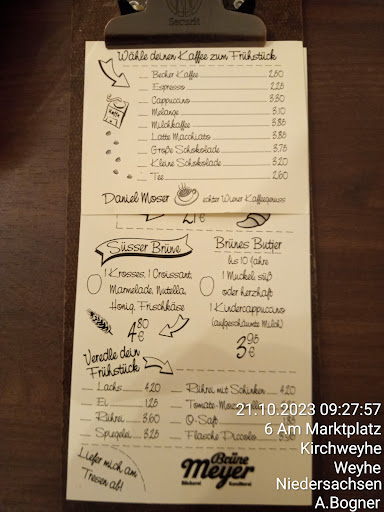 Securit
Wähle deinen Kaffee zum Frühstück
Becher Kaffee 2.50
Espresso 2.25
Cappucino 3.30
Melange 3.10
Milchkaffee 3.85
Latte Macchiato 3.85
Große Schokolade 3.75
Kleine Schokolade 3.20
Tee 2.60
Daniel Moser echter Wiener Kaffeegenuss
21 €
Süsser Brüne
1 Krosses, 1 Croissant,
Marmelade, Nutella,
Honig, Frischkäse
4.80 €
Brünes Butjer
bis 10 Jahre
1 Muckel süß
oder herzhaft
1 Kindercappuccino
(aufgeschäumte Milch)
3.95 €
Veredle dein
Frühstück
Lachs 4.20
Ei 1.25
Rührei 3.60
Spiegelei 3.25
Rührei mit Schinken 4.20
Tomate-Mozz
O-Saft
Flasche Piccolo
Liefer mich am
Tresen ab!
Brüne
Meyer
Bäckerei Konditorei
21.10.2023 09:27:57
6 Am Marktplatz
Kirchweyhe
Weyhe
Niedersachsen
A.Bogner